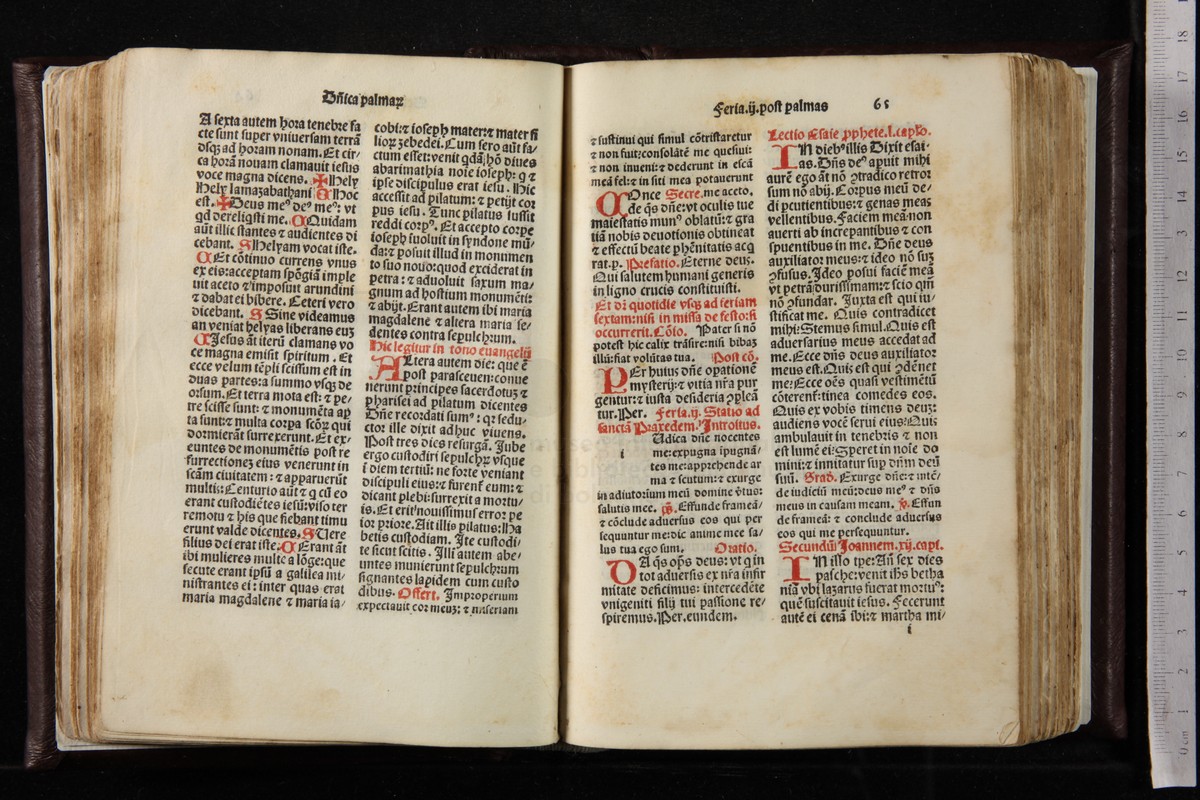 Dñica palmaꝝ
A sexta autem hora tenebre fa
cte sunt super vniuersam terrã
vsqꝫ ad horam nonam. Et cir/
ca horã nonam clamauit iesus
voce magna dicens. ✠ Hely
Hely lamazabathani C Hoc
est. ✠ Deus meꝰ deꝰ meꝰ: vt
qd dereliqsti me. C Quidam
aũt illic stantes ⁊ audientes di
cebant. S Helyam vocat iste.
C Et cõtinuo currens vnus
ex eis: acceptam spõgiã imple
uit aceto ⁊ imposuit arundini
⁊ dabat ei bibere. Ceteri vero
dicebant. S Sine videamus
an veniat helyas liberans euꝫ
C Iesus aũt iterũ clamans vo
ce magna emisit spiritum. Et
ecce velum tẽpli scissum est in
duas partes: a summo vsqꝫ de
orsum. Et terra mota est: ⁊ pe/
tre scisse sunt: ⁊ monumẽta ap
ta sunt: ⁊ multa corpa scõꝝ qui
dormierãt surrexerunt. Et ex/
euntes de monumẽtis post re
surrectionẽ eius venerunt in
scãm ciuitatem: ⁊ apparuerũt
multis. Centurio aũt ⁊ q cũ eo
erant custodiẽtes iesũ: viso ter
remotu ⁊ his que fiebant timu
erunt valde dicentes. S Vere
filius dei erat iste. C Erant aũt
ibi mulieres multe a lõge: que
secute erant ipsũ a galilea mi/
nistrantes ei: inter quas erat
maria magdalene ⁊ maria ia/
cobi: ⁊ ioseph mater: ⁊ mater fi
lioꝝ zebedei. Cum sero aũt fa/
ctum esset: venit qdã hõ diues
abarimathia noie ioseph: q ⁊
ipse discipulus erat iesu. Hic
accessit ad pilatum: ⁊ petijt cor
pus iesu. Tunc pilatus iussit
reddi corpꝰ. Et accepto corpe
ioseph inuoluit in syndone mũ/
da: ⁊ posuit illud in monumen
to suo nouo: quod exciderat in
petra: ⁊ aduoluit saxum ma/
gnum ad hostium monumẽti:
⁊ abijt. Erant autem ibi maria
magdalene ⁊ altera maria se/
dentes contra sepulchrum.
Hic legitur in tono euangelij
Altera autem die: que ẽ
post parasceuen: conue
nerunt principes sacerdotuꝫ ⁊
pharisei ad pilatum dicentes
Dñe recordati sumꝰ: qꝛ sedu/
ctor ille dixit adhuc viuens.
Post tres dies resurgã. Iube
ergo custodiri sepulchꝝ vsque
ĩ diem tertiũ: ne forte veniant
discipuli eius: ⁊ furenꝉ eum: ⁊
dicant plebi: surrexit a mortu/
is. Et erit nouissimus error pe
ior priore. Ait illis pilatus: Ha
betis custodiam. Ite custodi/
te sicut scitis. Illi autem abe/
untes munierunt sepulchrum
signantes lapidem cum custo
dibus. Offert. Improperium
expectauit cor meuꝫ: ⁊ miseriam
Feria.ij.post palmas 65
⁊ sustinui qui simul cõtristaretur
⁊ non fuit: consolãtẽ me quesiui:
⁊ non inueni: ⁊ dederunt in escã
meã fel: ⁊ in siti mea potauerunt
me aceto. Secre.
COnce
de q̃s dñe: vt oculis tue
maiestatis munꝰ oblatũ: ⁊ gra
tiã nobis deuotionis obtineat
⁊ effectũ beate phẽnitatis acq
rat. p. Prefatio. Eterne deus.
Qui salutem humani generis
in ligno crucis constituisti.
Et dr̃ quotidie vsqꝫ ad feriam
sextam: nisi in missa de festo: si
occurrerit. Cõio. Pater si nõ
potest hic calix trãsire: nisi bibaꝫ
illũ: fiat volũtas tua. Post cõ.
PEr huius dñe opationẽ
mysterij: ⁊ vitia nr̃a pur
gentur: ⁊ iusta desideria ꝯpleã
tur. Per. Feria.ij. Statio ad
sanctã Praxedem. Introitus.
i Udica dñe nocentes
me: expugna ĩpugnã/
tes me: apprehende ar
ma ⁊ scutum: ⁊ exurge
in adiutorium meũ domine vtus:
salutis mee. ps. Effunde frameã/
⁊ cõclude aduersus eos qui per
sequuntur me: dic anime mee sa/
lus tua ego sum. Oratio.
DA q̃s op̃s deus: vt q in
tot aduersis ex nr̃a infir
mitate deficimus: intercedẽte
vnigeniti filij tui passione re/
spiremus. Per. eundem.
Lectio Esaie ꝓphete.l.capĺo.
IN diebꝰ illis Dixit esai/
as. Dñs deꝰ apuit mihi
aurẽ ego aũt nõ ꝯtradico retror
sum nõ abij. Corpus meũ de/
di pcutientibus: ⁊ genas meas
vellentibus. Faciem meã non
auerti ab increpantibus ⁊ con
spuentibus in me. Dñe deus
auxiliator meus: ⁊ ideo nõ suꝫ
ꝯfusus. Ideo posui faciẽ meã
vt petrã durissimam: ⁊ scio qm̃
nõ ꝯfundar. Juxta est qui iu/
stificat me. Quis contradicet
mihi: Stemus simul. Quis est
aduersarius meus accedat ad
me. Ecce dñs deus auxiliator
meus est. Quis est qui ꝯdẽnet
me: Ecce oẽs quasi vestimẽtũ
cõterent: tinea comedes eos.
Quis ex vobis timens deuꝫ:
audiens vocẽ serui eius: Quis
ambulauit in tenebris ⁊ non
est lumẽ ei: Speret in noĩe do
mini: ⁊ innitatur sup dñm deũ
suũ. Grad. Exurge dñe: ⁊ intẽ/
de iudiciũ meũ: deus meꝰ ⁊ dñs
meus in causam meam. ℣. Effun
de frameã: ⁊ conclude aduersus
eos qui me persequuntur.
Secundũ Joannem.xij.capĺ.
IN illo tpe: Añ sex dies
pasche: venit iħs betha
niã vbi lazarus fuerat mortuꝰ:
quẽ suscitauit iesus. Fecerunt
autẽ ei cenã ibi: ⁊ martha mi/
i